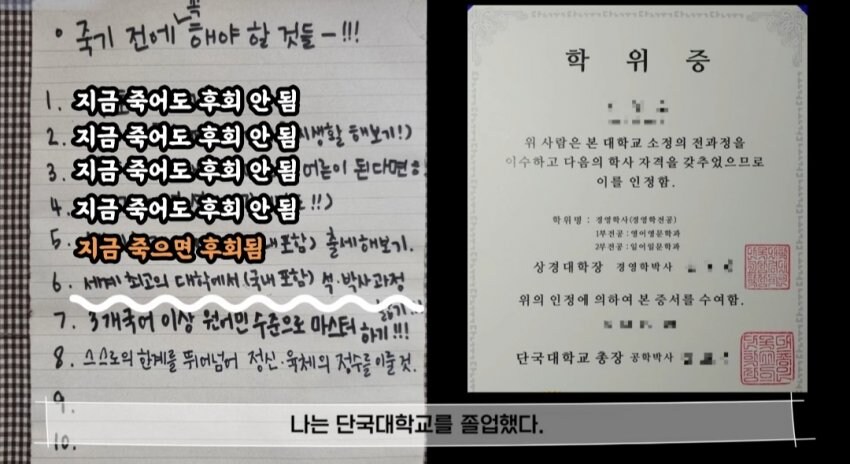 ◦ 죽기 전에 꼭 해야 할 것들 - !!!
1. 지금 죽어도 후회 안 됨
2. 지금 죽어도 후회 안 됨 생활 해보기!)
3. 지금 죽어도 후회 안 됨 어른이 된다면
4. 지금 죽어도 후회 안 됨 !!)
5. 지금 죽으면 후회됨 포함) 출세해보기.
6. 세계 최고의 대학에서 (국내 포함) 석·박사과정
밟기!!!
7. 3개국어 이상 원어민 수준으로 마스터 하기!!!
8. 스스로의 한계를 뛰어넘어 정신·육체의 정수를 이룰 것.
9.
10.
학 위 증
위 사람은 본 대학교 소정의 전과정을
이수하고 다음의 학사 자격을 갖추었으므로
이를 인정함.
학위명 : 경영학사(경영학전공)
1부전공 : 영어영문학과
2부전공 : 일어일문학과
상경대학장 경영학박사
위의 인정에 의하여 본 증서를 수여함.
단국대학교 총장 공학박사
나는 단국대학교를 졸업했다.